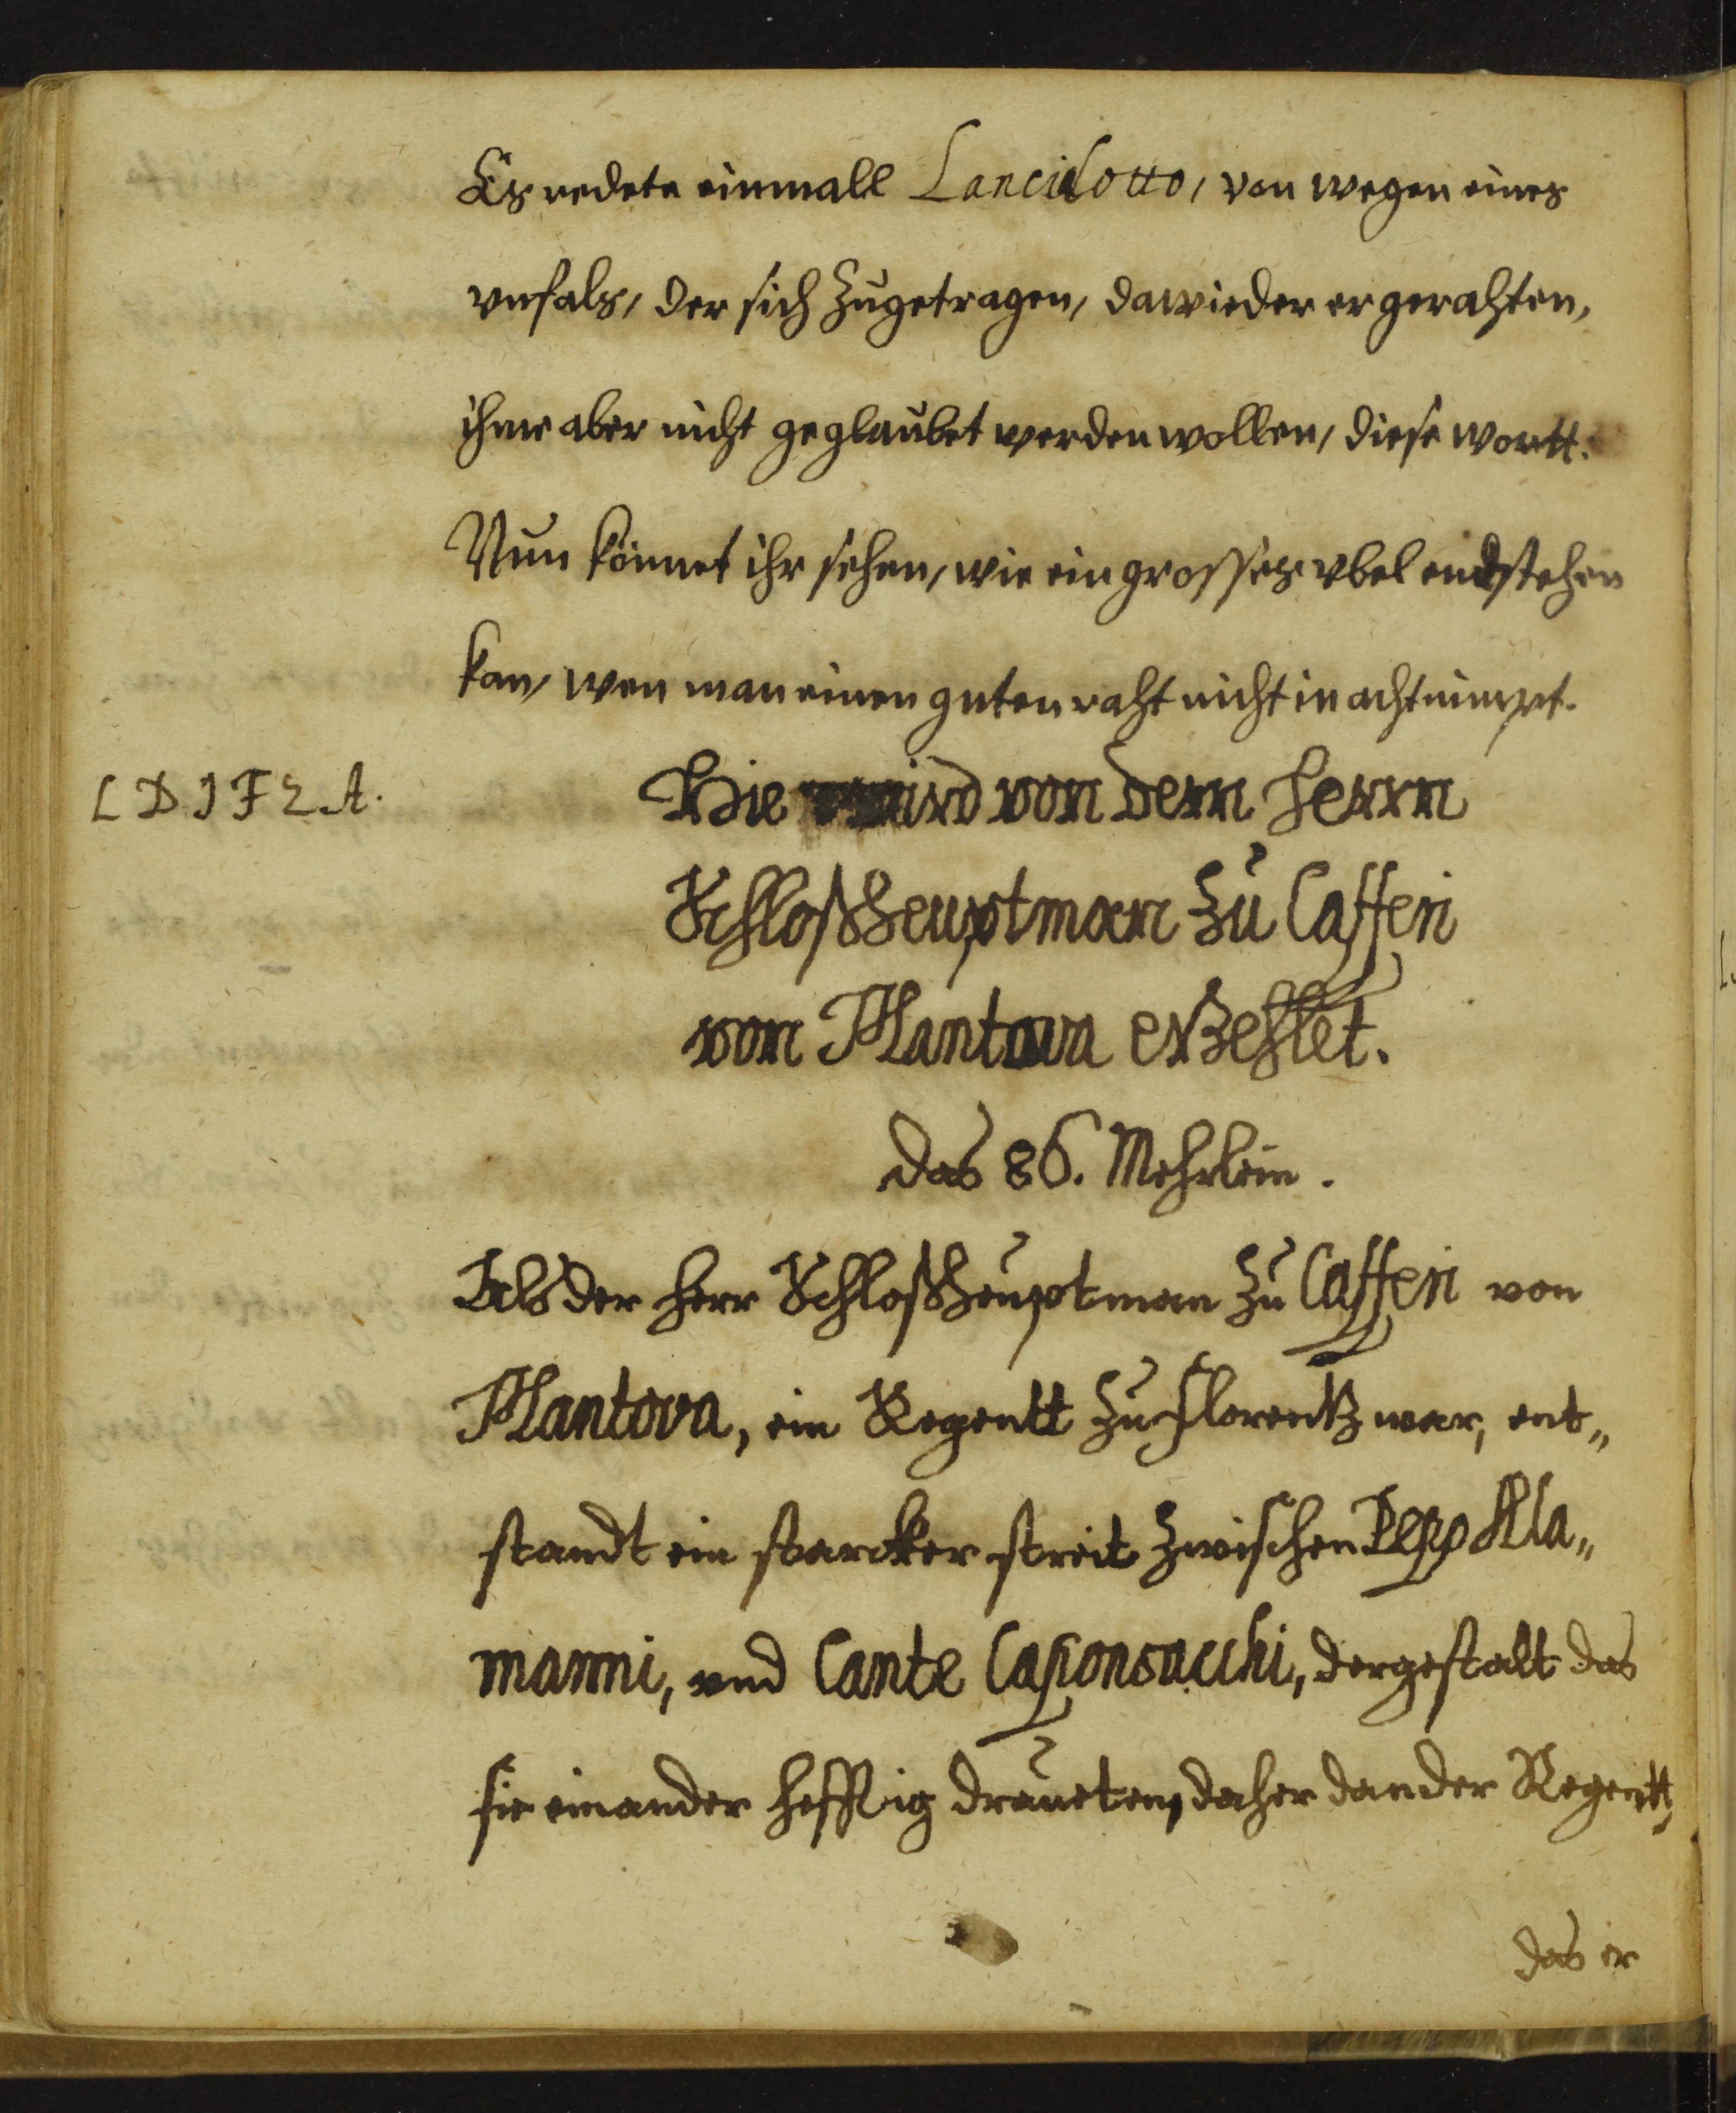 Es redete einmall Lancilotto, von wegen eines
vnfals, der sich zugetragen, dawieder er gerahten,
ihme aber nicht geglaubet werden wollen, diese wortt.
Nun könnet ihr sehen, wie ein grosses vbel endstehen
kan, wen man einen guten raht nicht in acht nimpt.
L D I F E A.
Hie wird von dem Herrn
Schloßheuptman zu Cafferi
von Mantova erzehlet.
Das 86. Mehrlein.
Als der Herr Schloßheuptman zu Cafferi von
Mantova, ein Regentt zu Florentz war, ent„
standt ein starcker streit zwischen Pepo Ala„
manni, und Cante Caponsacchi, dergestalt das
sie einander hefftig dräueten, daher dan der Regentt,
das er